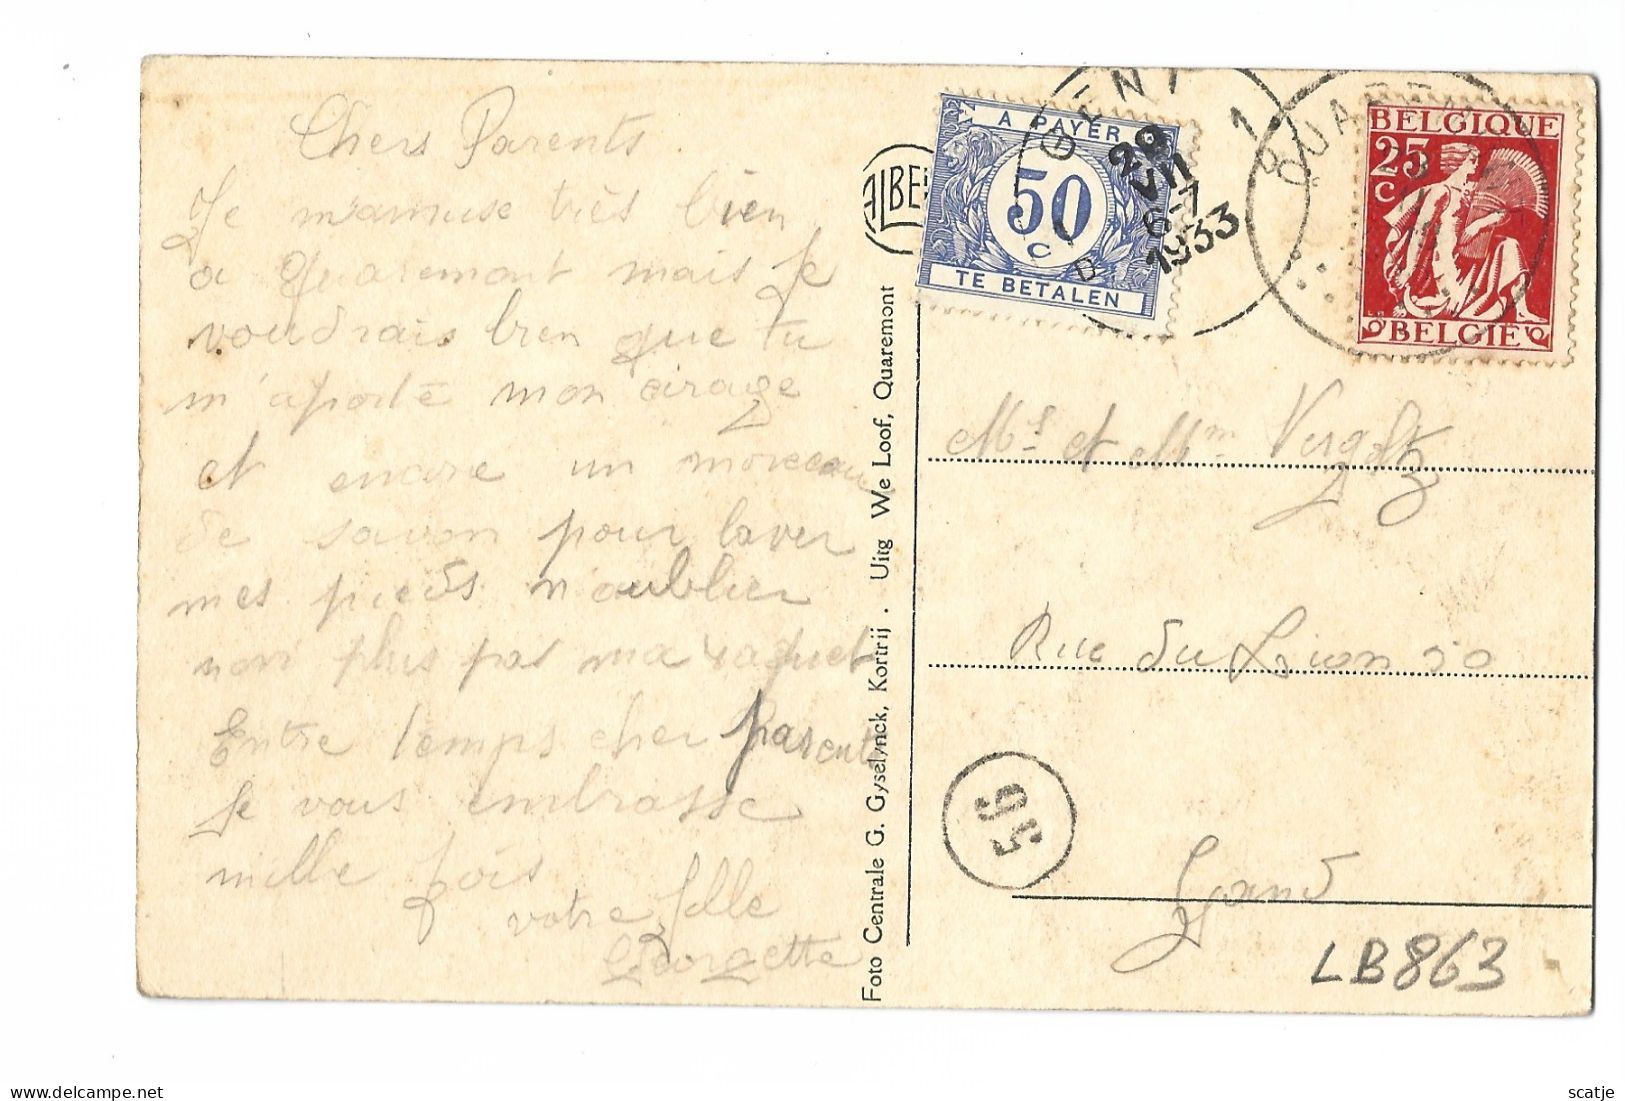 Chers Parents
Je m'amuse très bien
a Quaremont mais je
voudrais bien que tu
m'aporte mon cirage
et encore un morceau
de savon pour laver
mes pieds n'oublier
non plus pas ma raquet
Entre temps cher parents
Je vous embrasse
mille fois
votre fille
Georgette
ALBE
Foto Centrale G. Gyselynck, Kortrij . Uitg We Loof, Quaremont
A PAYER
50
C
TE BETALEN
GENT 1
29
VII
6-7
1933
D
QUAREM
BELGIQUE
25
C
BELGIE
Mr et Mm
Rue du Lion 50
56
Gand
LB863
scatje